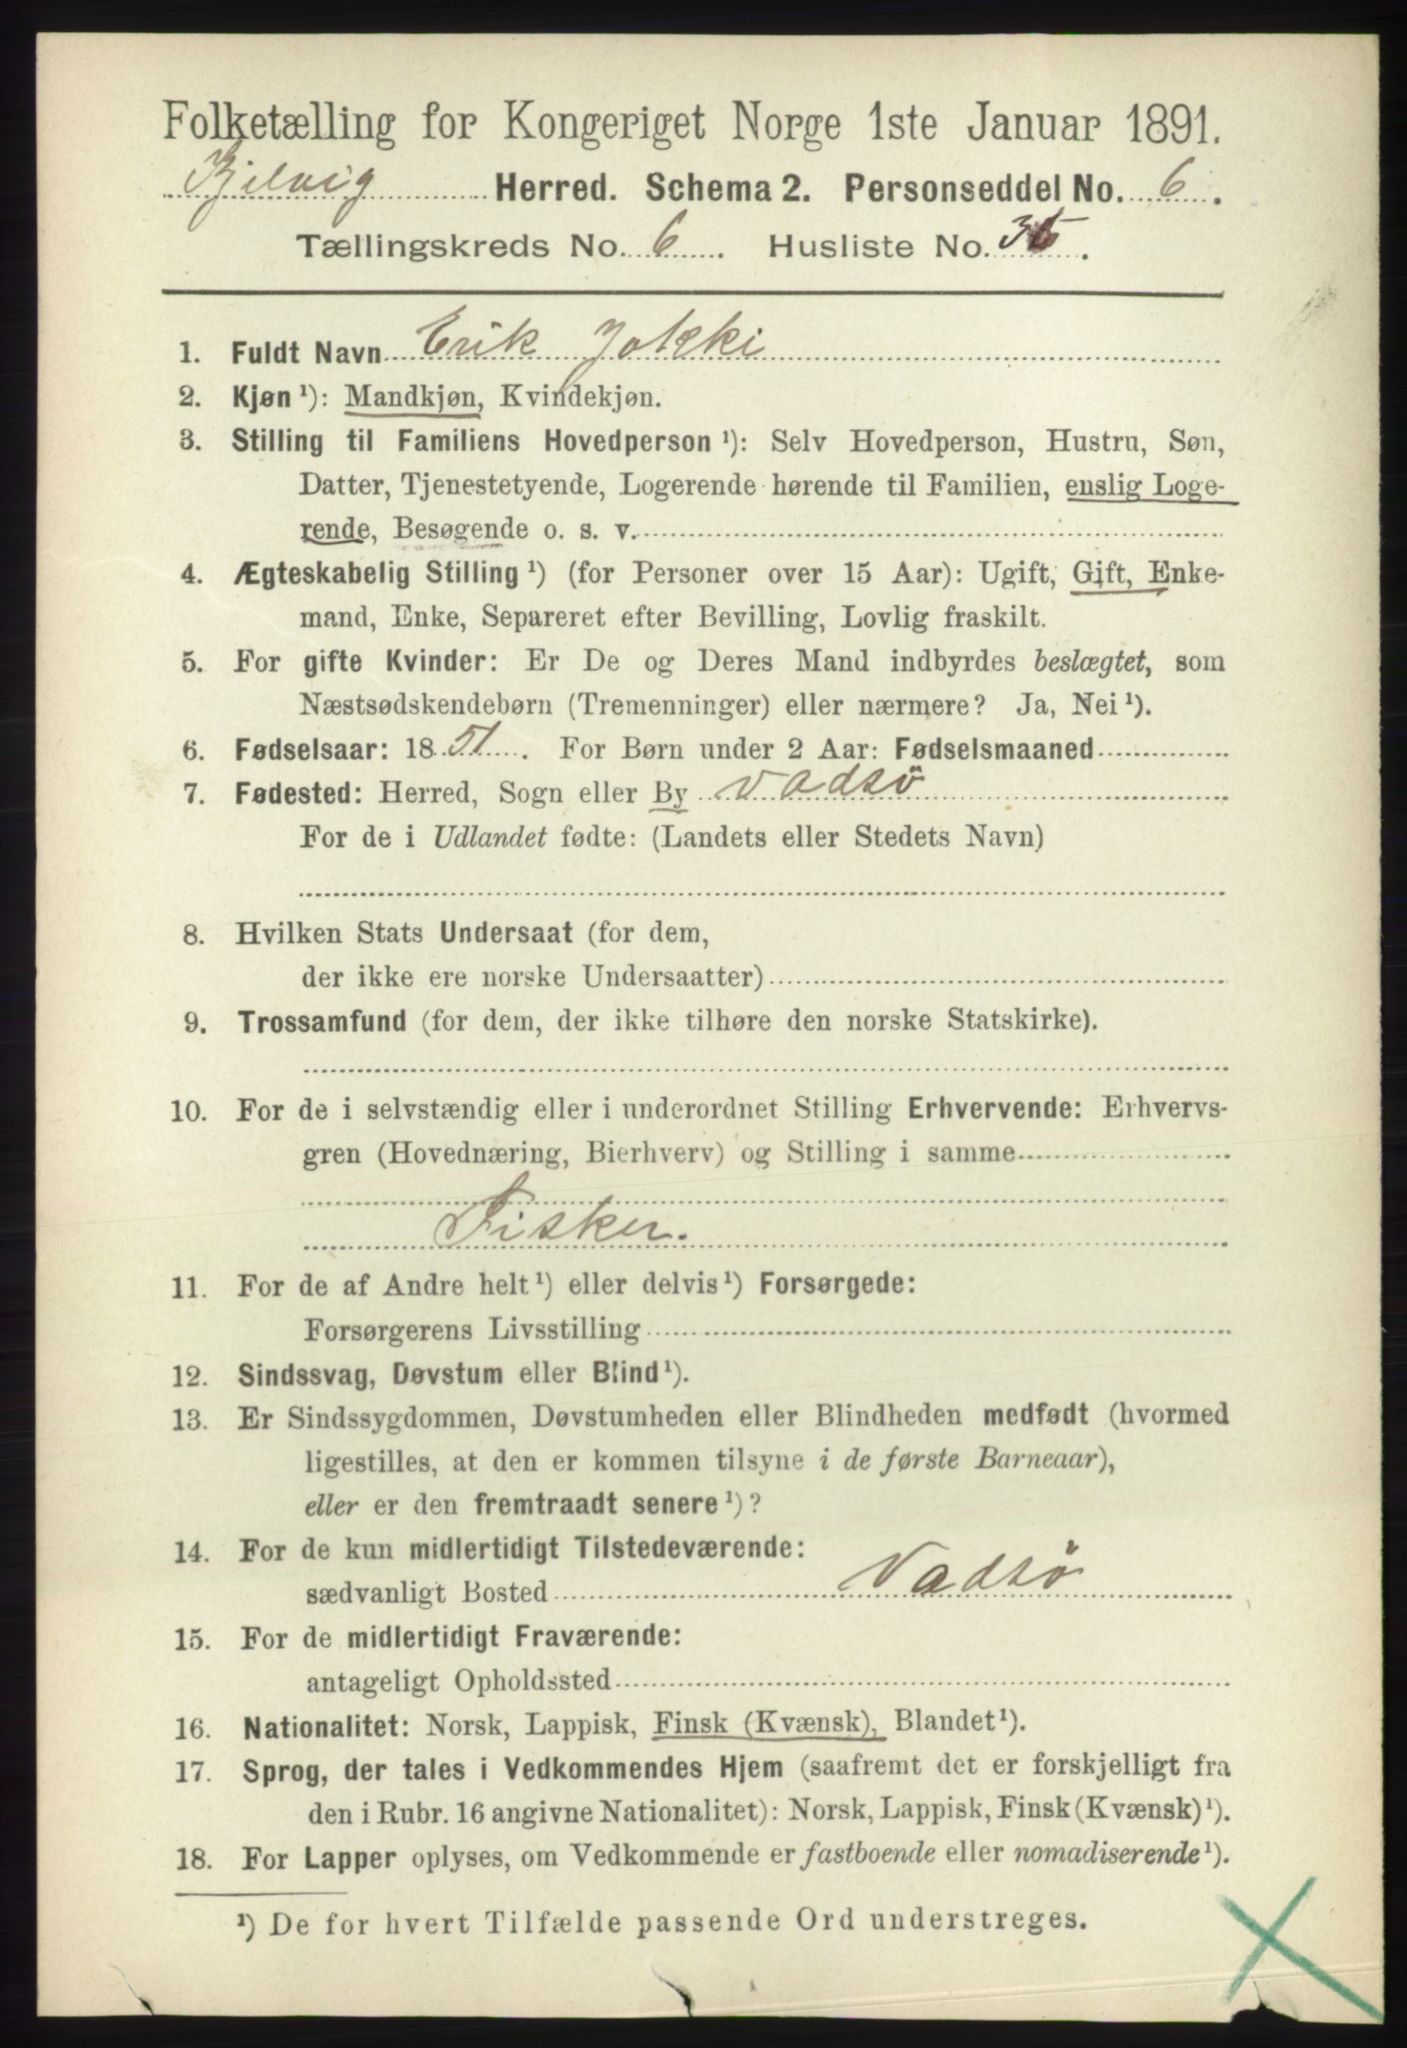 Folketælling for Kongeriget Norge 1ste Januar 1891.
Kjelvig Herred. Schema 2. Personseddel No. 6.
Tællingskreds No. 6. Husliste No.
1. Fuldt Navn Erik Jokki
2. Kjøn ¹): Mandkjøn, Kvindekjøn.
3. Stilling til Familiens Hovedperson ¹): Selv Hovedperson, Hustru, Søn,
Datter, Tjenestetyende, Logerende hørende til Familien, enslig Loge-
rende, Besøgende o. s. v.
4. Ægteskabelig Stilling ¹) (for Personer over 15 Aar): Ugift, Gift, Enke-
mand, Enke, Separeret efter Bevilling, Lovlig fraskilt.
5. For gifte Kvinder: Er De og Deres Mand indbyrdes beslægtet, som
Næstsødskendebørn (Tremenninger) eller nærmere? Ja, Nei ¹).
6. Fødselsaar: 1851. For Børn under 2 Aar: Fødselsmaaned
7. Fødested: Herred, Sogn eller By Vadsö
For de i Udlandet fødte: (Landets eller Stedets Navn)
8. Hvilken Stats Undersaat (for dem,
der ikke ere norske Undersaatter)
9. Trossamfund (for dem, der ikke tilhøre den norske Statskirke).
10. For de i selvstændig eller i underordnet Stilling Erhvervende: Erhvervs-
gren (Hovednæring, Bierhverv) og Stilling i samme
Fisker.
11. For de af Andre helt ¹) eller delvis ¹) Forsørgede:
Forsørgerens Livsstilling
12. Sindssvag, Døvstum eller Blind ¹).
13. Er Sindssygdommen, Døvstumheden eller Blindheden medfødt (hvormed
ligestilles, at den er kommen tilsyne i de første Barneaar),
eller er den fremtraadt senere ¹)?
14. For de kun midlertidigt Tilstedeværende:
sædvanligt Bosted Vadsö
15. For de midlertidigt Fraværende:
antageligt Opholdssted
16. Nationalitet: Norsk, Lappisk, Finsk (Kvænsk), Blandet ¹).
17. Sprog, der tales i Vedkommendes Hjem (saafremt det er forskjelligt fra
den i Rubr. 16 angivne Nationalitet): Norsk, Lappisk, Finsk (Kvænsk) ¹).
18. For Lapper oplyses, om Vedkommende er fastboende eller nomadiserende ¹).
¹) De for hvert Tilfælde passende Ord understreges.